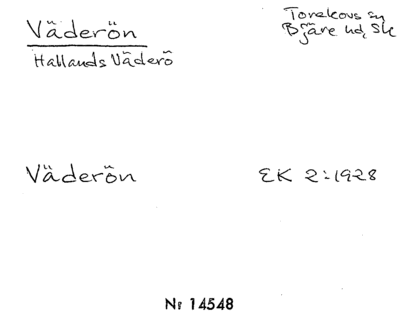 Väderön
Torekovs sn
Bjäre hd, Sk
Hallands Väderö
Väderön EK 2:1928
Nr 14548